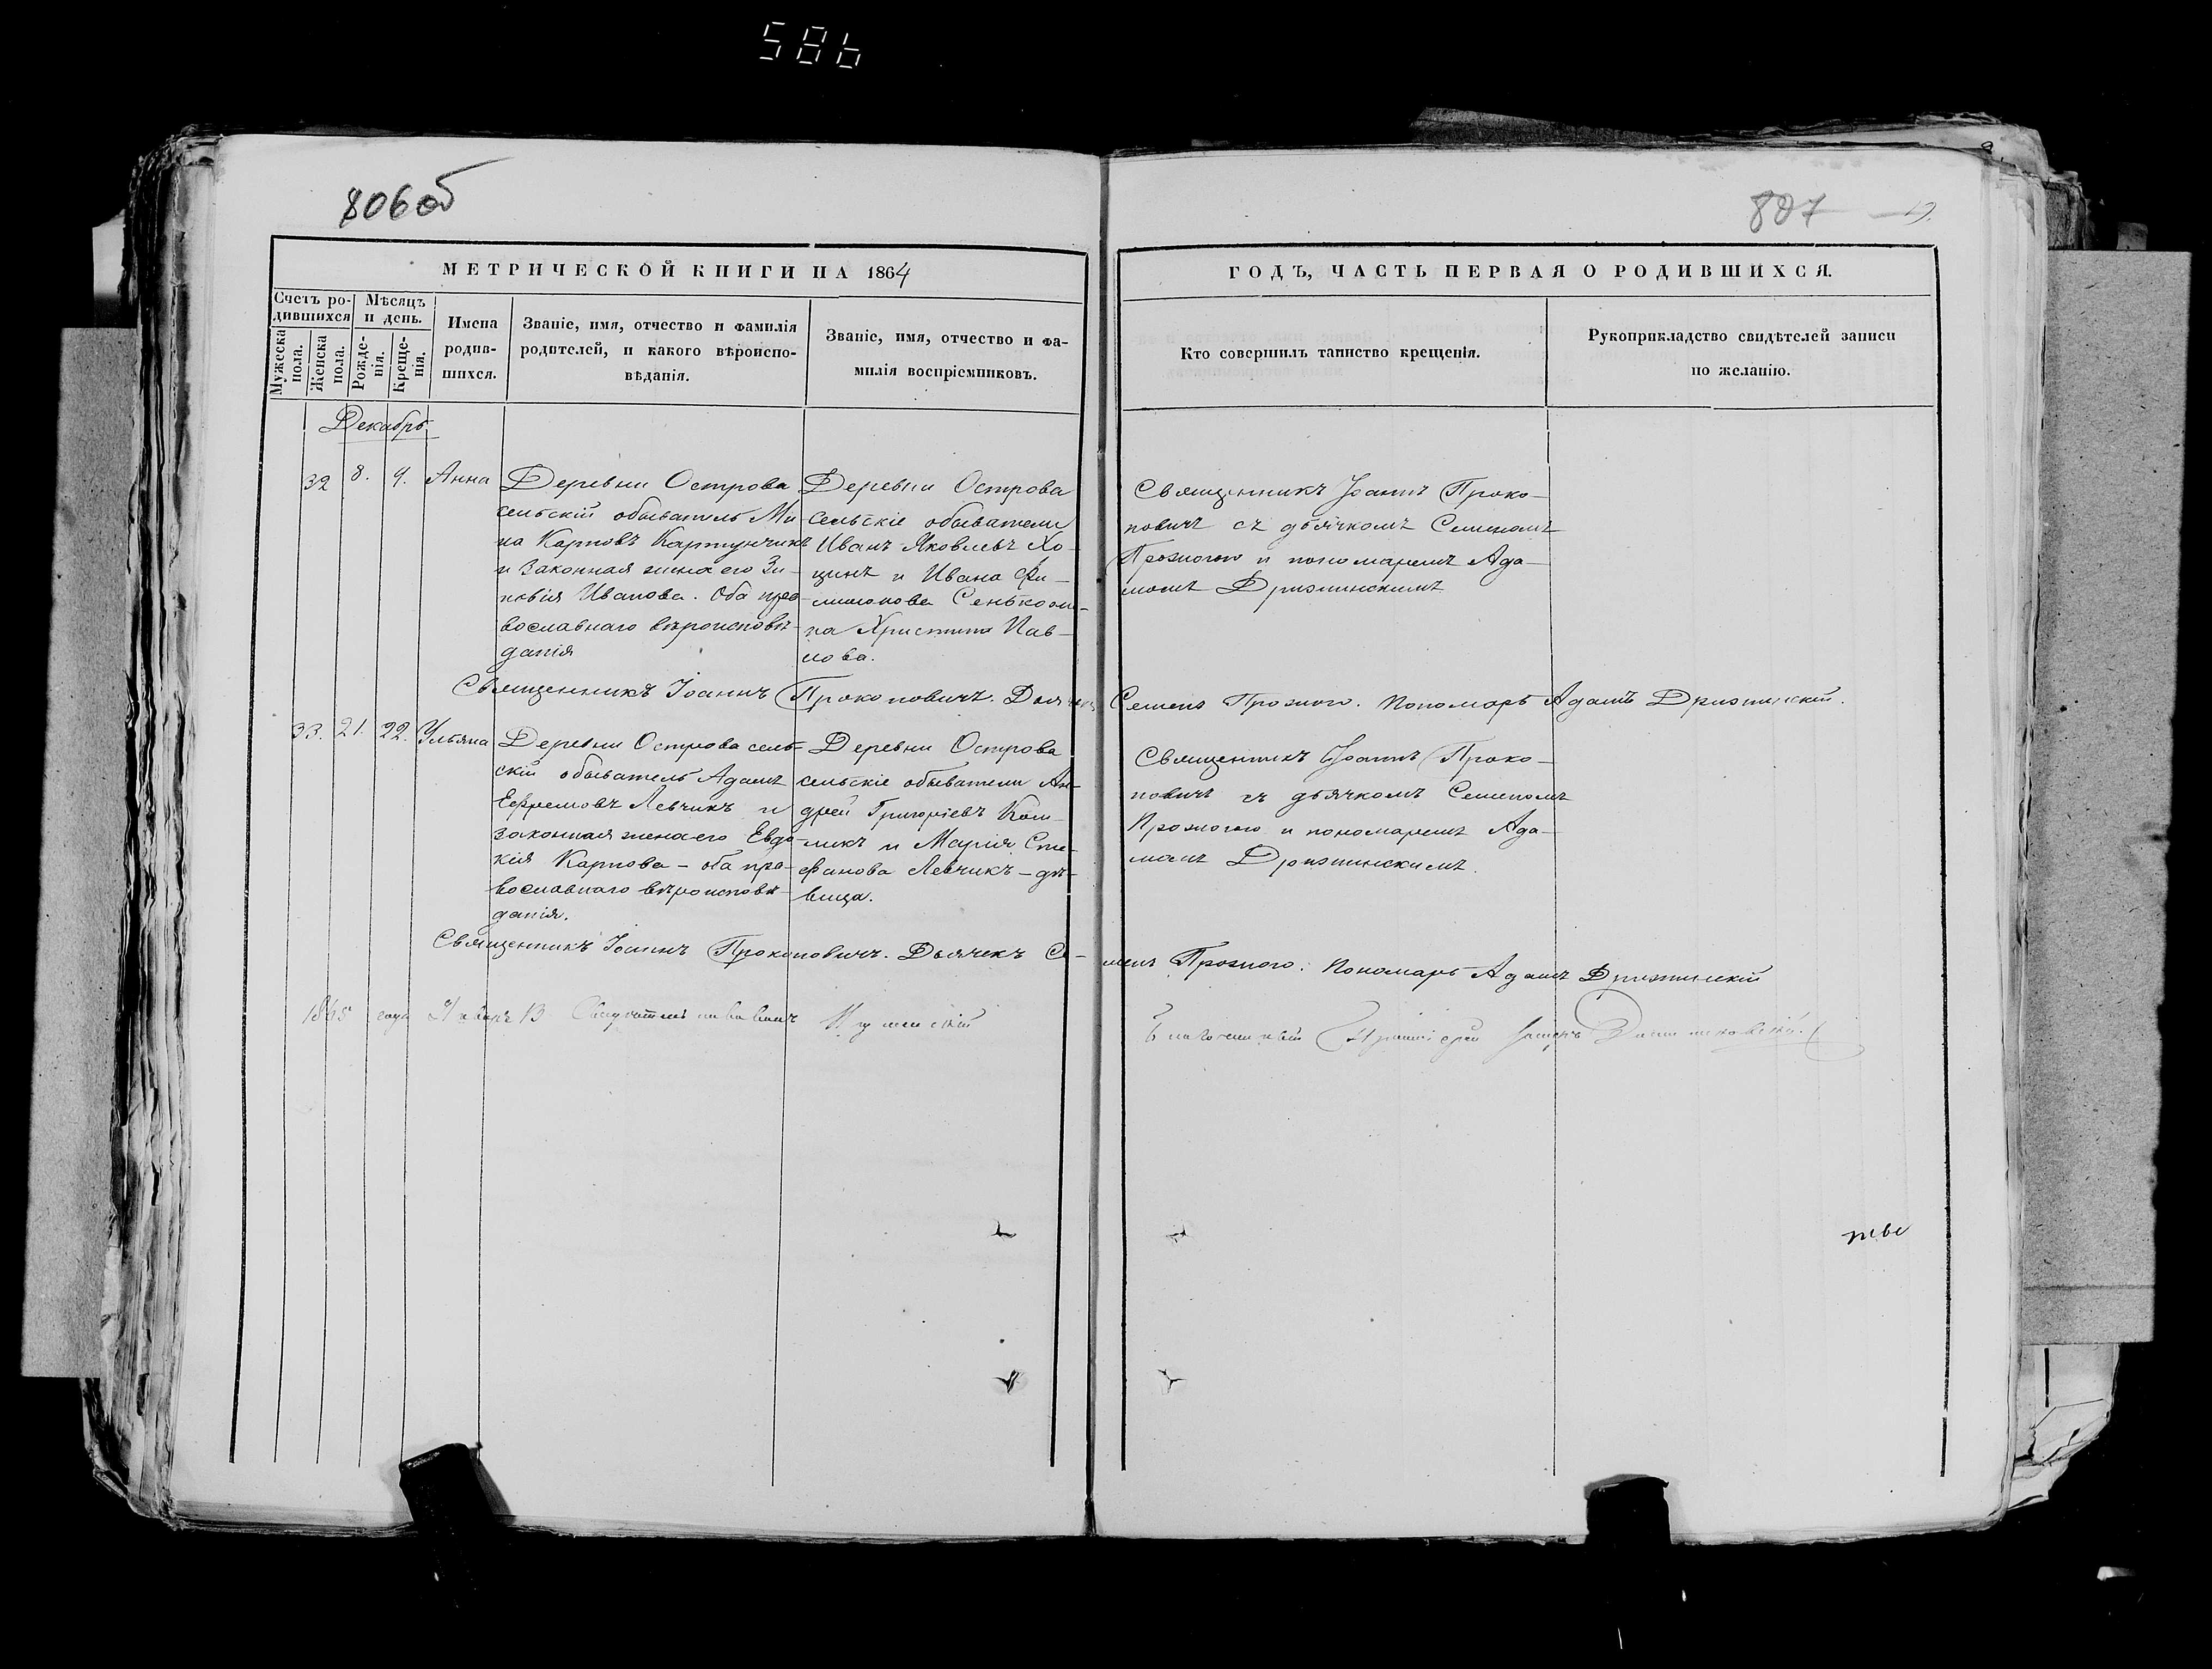 586
806об
807
МЕТРИЧЕСКОЙ КНИГИ НА 1864
ГОДЪ, ЧАСТЬ ПЕРВАЯ О РОДИВШИХСЯ.
Счетъ ро-
дившихся
Мужеска
пола.
Женска
пола.
Мѣсяцъ
и день.
Рожде-
нія.
Креще-
нія.
Имена
родив-
шихся.
Званіе, имя, отчество и фамилія
родителей, и какого вѣроиспо-
вѣданія.
Званіе, имя, отчество и фа-
милія воспріемниковъ.
Кто совершилъ таинство крещенія.
Рукоприкладство свидѣтелей записи
по желанію.
Декабрь
32 8. 9. Анна
Деревни Острова
сельскій обыватель Ми-
на Карповъ Картунчикъ
и законная жена его Зи-
новія Иванова. Оба пра-
вославнаго вѣроисповѣ-
данія
Деревни Острова
сельскіе обыватели
Иванъ Яковлевъ Хо-
цинъ и Ивана Фи-
лимонова Сенько
на Христина Пав-
лова.
Священникъ Іоаннъ Проко-
повичъ съ дьячкомъ Семеномъ
Прозного и пономаремъ Ада-
момъ
Священникъ Іоаннъ Прокоповичъ. Дьячекъ Семенъ Прозного. Пономарь Адамъ
33. 21. 22. Ульяна
Деревни Острова сель-
скій обыватель Адамъ
Ефремовъ Левчикъ и
законная жена его Евдо-
кія Карпова - оба пра-
вославнаго вѣроисповѣ-
данія.
Деревни Острова
сельскіе обыватели Ан-
дрей Григоріевъ
и Марія Сте-
фанова Левчикъ - дѣ-
вица.
Священникъ Іоаннъ Проко-
повичъ съ дьячкомъ Семеномъ
Прозного и пономаремъ Ада-
момъ
Священникъ Іоаннъ Прокоповичъ. Дьячекъ Се-
менъ Прозного. Пономарь Адамъ
1865 года Января 13